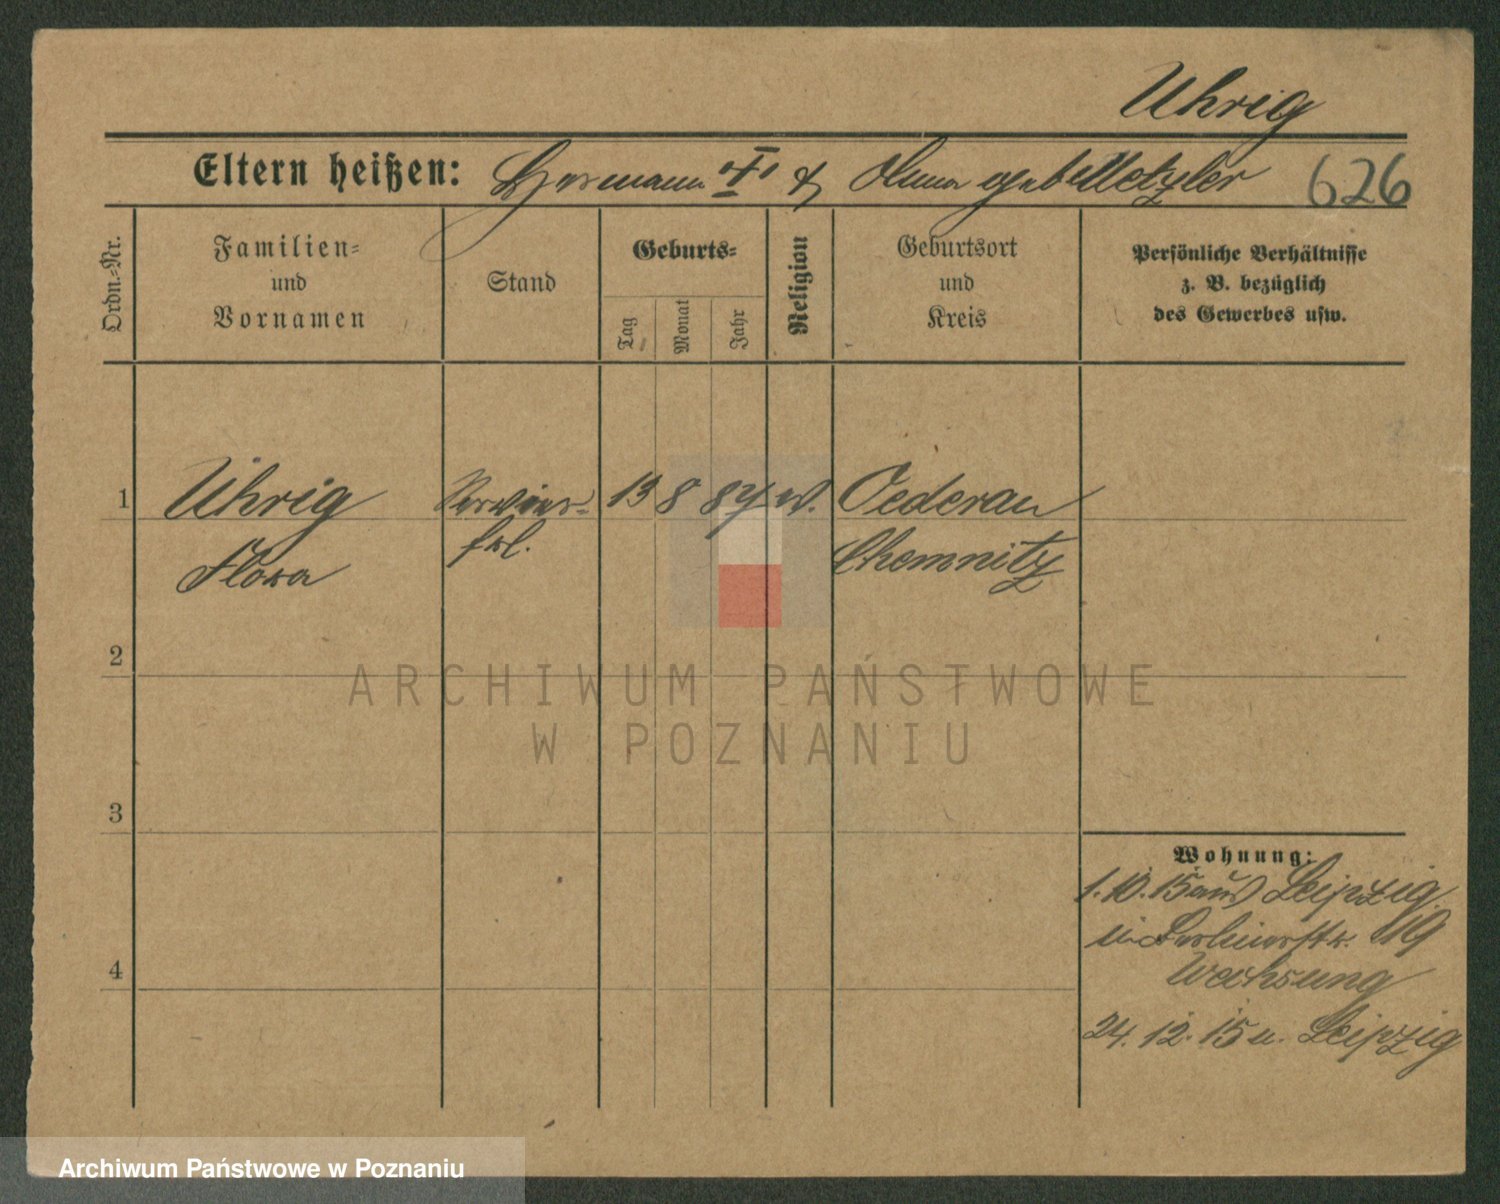 Uhrig
Eltern heißen: Hermann "†" & Anna geb Metzler 626
Ordn.-Nr.
Familien-
und
Vornamen
Stand
Geburts-
Tag
Monat
Jahr
Religion
Geburtsort
und
Kreis
Persönliche Verhältnisse
z. B. bezüglich
des Gewerbes usw.
1 Uhrig Servier- 13 8 87 w. Oederan
Flora frl. Chemnitz
2
3
4
Wohnung:
1.10.15 aus Leipzig
in 19
24.12.15 n. Leipzig
ARCHIWUM PAŃSTWOWE
W POZNANIU
Archiwum Państwowe w Poznaniu